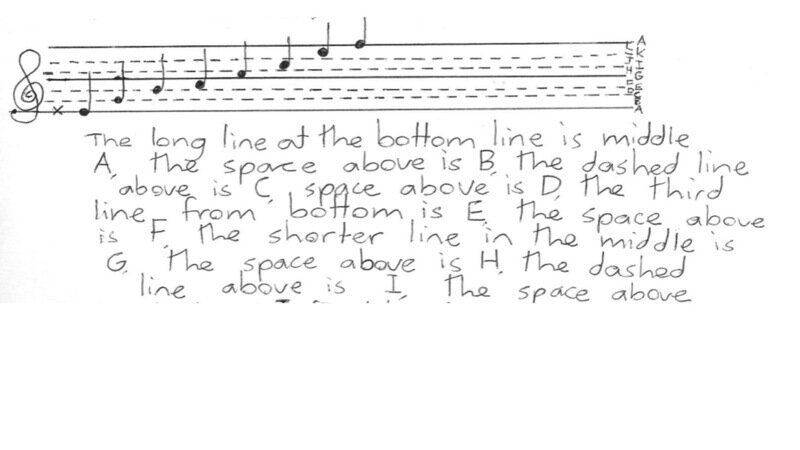 A
L
K
J
I
H
G
F
A
The long line at the bottom line is middle
A, the space above is B, the dashed line
above is C, space above is D, the third
line from bottom is E, the space above
is F, the shorter line in the middle is
G, the space above is H, the dashed
line above is I, the space above